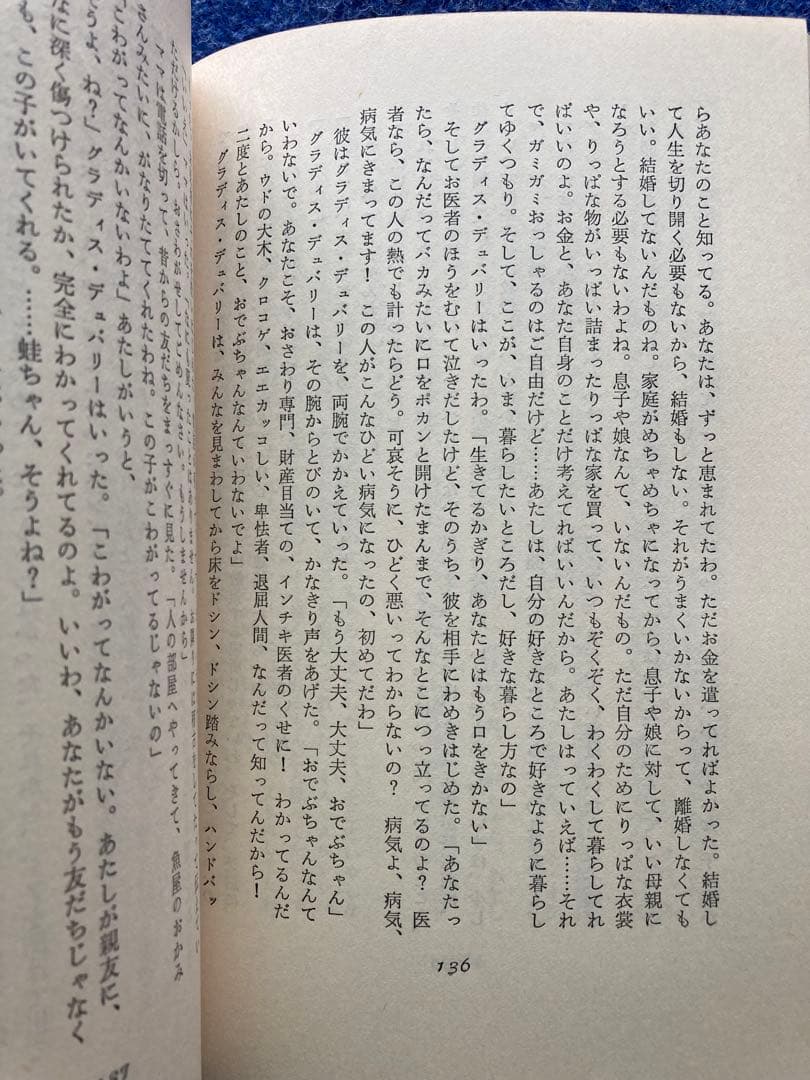 らあなたのこと知ってる。あなたは、ずっと恵まれてたわ。ただお金を遣ってればよかった。結婚し
て人生を切り開く必要もないから、結婚もしない。それがうまくいかないからって、離婚しなくても
いい。結婚してないんだものね。家庭がめちゃめちゃになってから、息子や娘に対して、いい母親に
なろうとする必要もないわよね。息子や娘なんて、いないんだもの。ただ自分のためにりっぱな衣裳
や、りっぱな物がいっぱい詰まったりっぱな家を買って、いつもぞくぞく、わくわくして暮らしてれ
ばいいのよ。お金と、あなた自身のことだけ考えてればいいんだから。あたしはっていえば……それ
で、ガミガミおっしゃるのはご自由だけど……あたしは、自分の好きなところで好きなように暮らし
てゆくつもり。そして、ここが、いま、暮らしたいところだし、好きな暮らし方なの」
グラディス・デュバリーはいったわ。「生きてるかぎり、あなたとはもう口をきかない」
そしてお医者のほうをむいて泣きだしたけど、そのうち、彼を相手にわめきはじめた。「あなたっ
たら、なんだってバカみたいに口をポカンと開けたまんまで、そんなとこにつっ立ってるのよ？　医
者なら、この人の熱でも計ったらどう。可哀そうに、ひどく悪いってわからないの？　病気よ、病気、
病気にきまってます！　この人がこんなひどい病気になったの、初めてだわ」
彼はグラディス・デュバリーを、両腕でかかえていった。「もう大丈夫、大丈夫、おでぶちゃん」
グラディス・デュバリーは、その腕からとびのいて、かなきり声をあげた。「おでぶちゃんなんて
いわないで。あなたこそ、おさわり専門、財産目当ての、インチキ医者のくせに！　わかってるんだ
から。ウドの大木、クロコゲ、エエカッコしい、卑怯者、退屈人間、なんだって知ってんだから！
二度とあたしのこと、おでぶちゃんなんていわないでよ」
グラディス・デュバリーは、みんなを見まわしてから床をドシン、ドシン踏みならし、ハンドバッ
136
ただけるかしら。おさわがせしてごめんなさい。もうしませんから」
ママは電話を切って、昔からの友だちをまっすぐに見た。「人の部屋へやってきて、魚屋のおかみ
さんみたいに、がなりたててくれたわね。この子がこわがってるじゃないの」
「こわがってなんかいないわよ」あたしがいうと、
そうよ、ね？」グラディス・デュバリーはいった。「こわがってなんかいない。あたしが親友に、
なに深く傷つけられたか、完全にわかってくれてるのよ。いいわ、あなたがもう友だちじゃなく
も、この子がいてくれる。……蛙ちゃん、そうよね？」